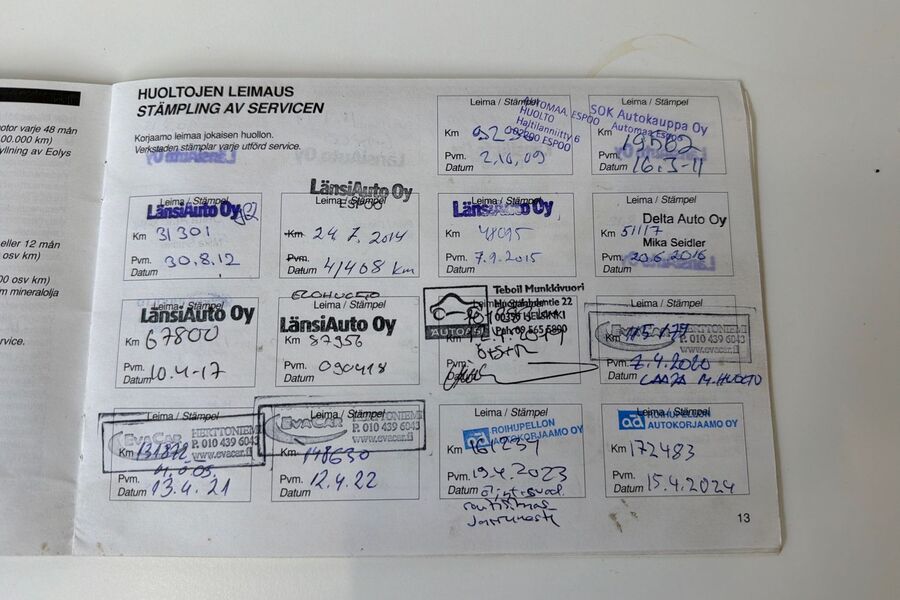 HUOLTOJEN LEIMAUS
STÄMPLING AV SERVICEN
Korjaamo leimaa jokaisen huollon.
Verkstaden stämplar varje utförd service.
motor varje 48 mån
00.000 km)
yllning av Eolys
eller 12 mån
osv km)
00 osv km)
m mineralolja
rvice.
Leima / Stämpel
AUTOMAA, ESPOO
HUOLTO
Haltilanniitty 6
ESPOO
Km
Pvm. 2.10.09
Datum
Leima / Stämpel
SOK Autokauppa Oy
Automaa Espoo
Km 19562
Pvm. 16.3-11
Datum
Leima / Stämpel
LänsiAuto Oy
Km 31301
Pvm. 30.8.12
Datum
Leima / Stämpel
LänsiAuto Oy
ESPOO
Km 24.7.2014
Pvm.
Datum 41408 km
Leima / Stämpel
LänsiAuto Oy
Km 48095
Pvm. 7.9.2015
Datum
Leima / Stämpel
Delta Auto Oy
Km 51117
Mika Seidler
Pvm. 20.6.2016
Datum
Leima / Stämpel
LänsiAuto Oy
Km 67800
Pvm. 10.4-17
Datum
Leima / Stämpel
LänsiAuto Oy
Km 87956
Pvm. 090418
Datum
Teboil Munkkivuori
Leima / Stämpel
00350 HELSINKI
Km
Pvm.
Datum
Leima / Stämpel
EVACAR HERTTONIEMI
P. 010 439 6043
www.evacar.fi
Km 115179
Pvm. 7.4.2020
Datum LAAJA M.HUOLTO
Leima / Stämpel
EVACAR HERTTONIEMI
P. 010 439 6043
www.evacar.fi
Km 131872
Pvm.
Datum 13.4.21
Leima / Stämpel
EVACAR HERTTONIEMI
P. 010 439 6043
www.evacar.fi
Km 148630
Pvm. 12.4.22
Datum
Leima / Stämpel
ad ROIHUPELLON
AUTOKORJAAMO OY
Km 161237
Pvm. 19.4.2023
Datum
Leima / Stämpel
ad ROIHUPELLON
AUTOKORJAAMO OY
Km 172483
Pvm. 15.4.2024
Datum
13